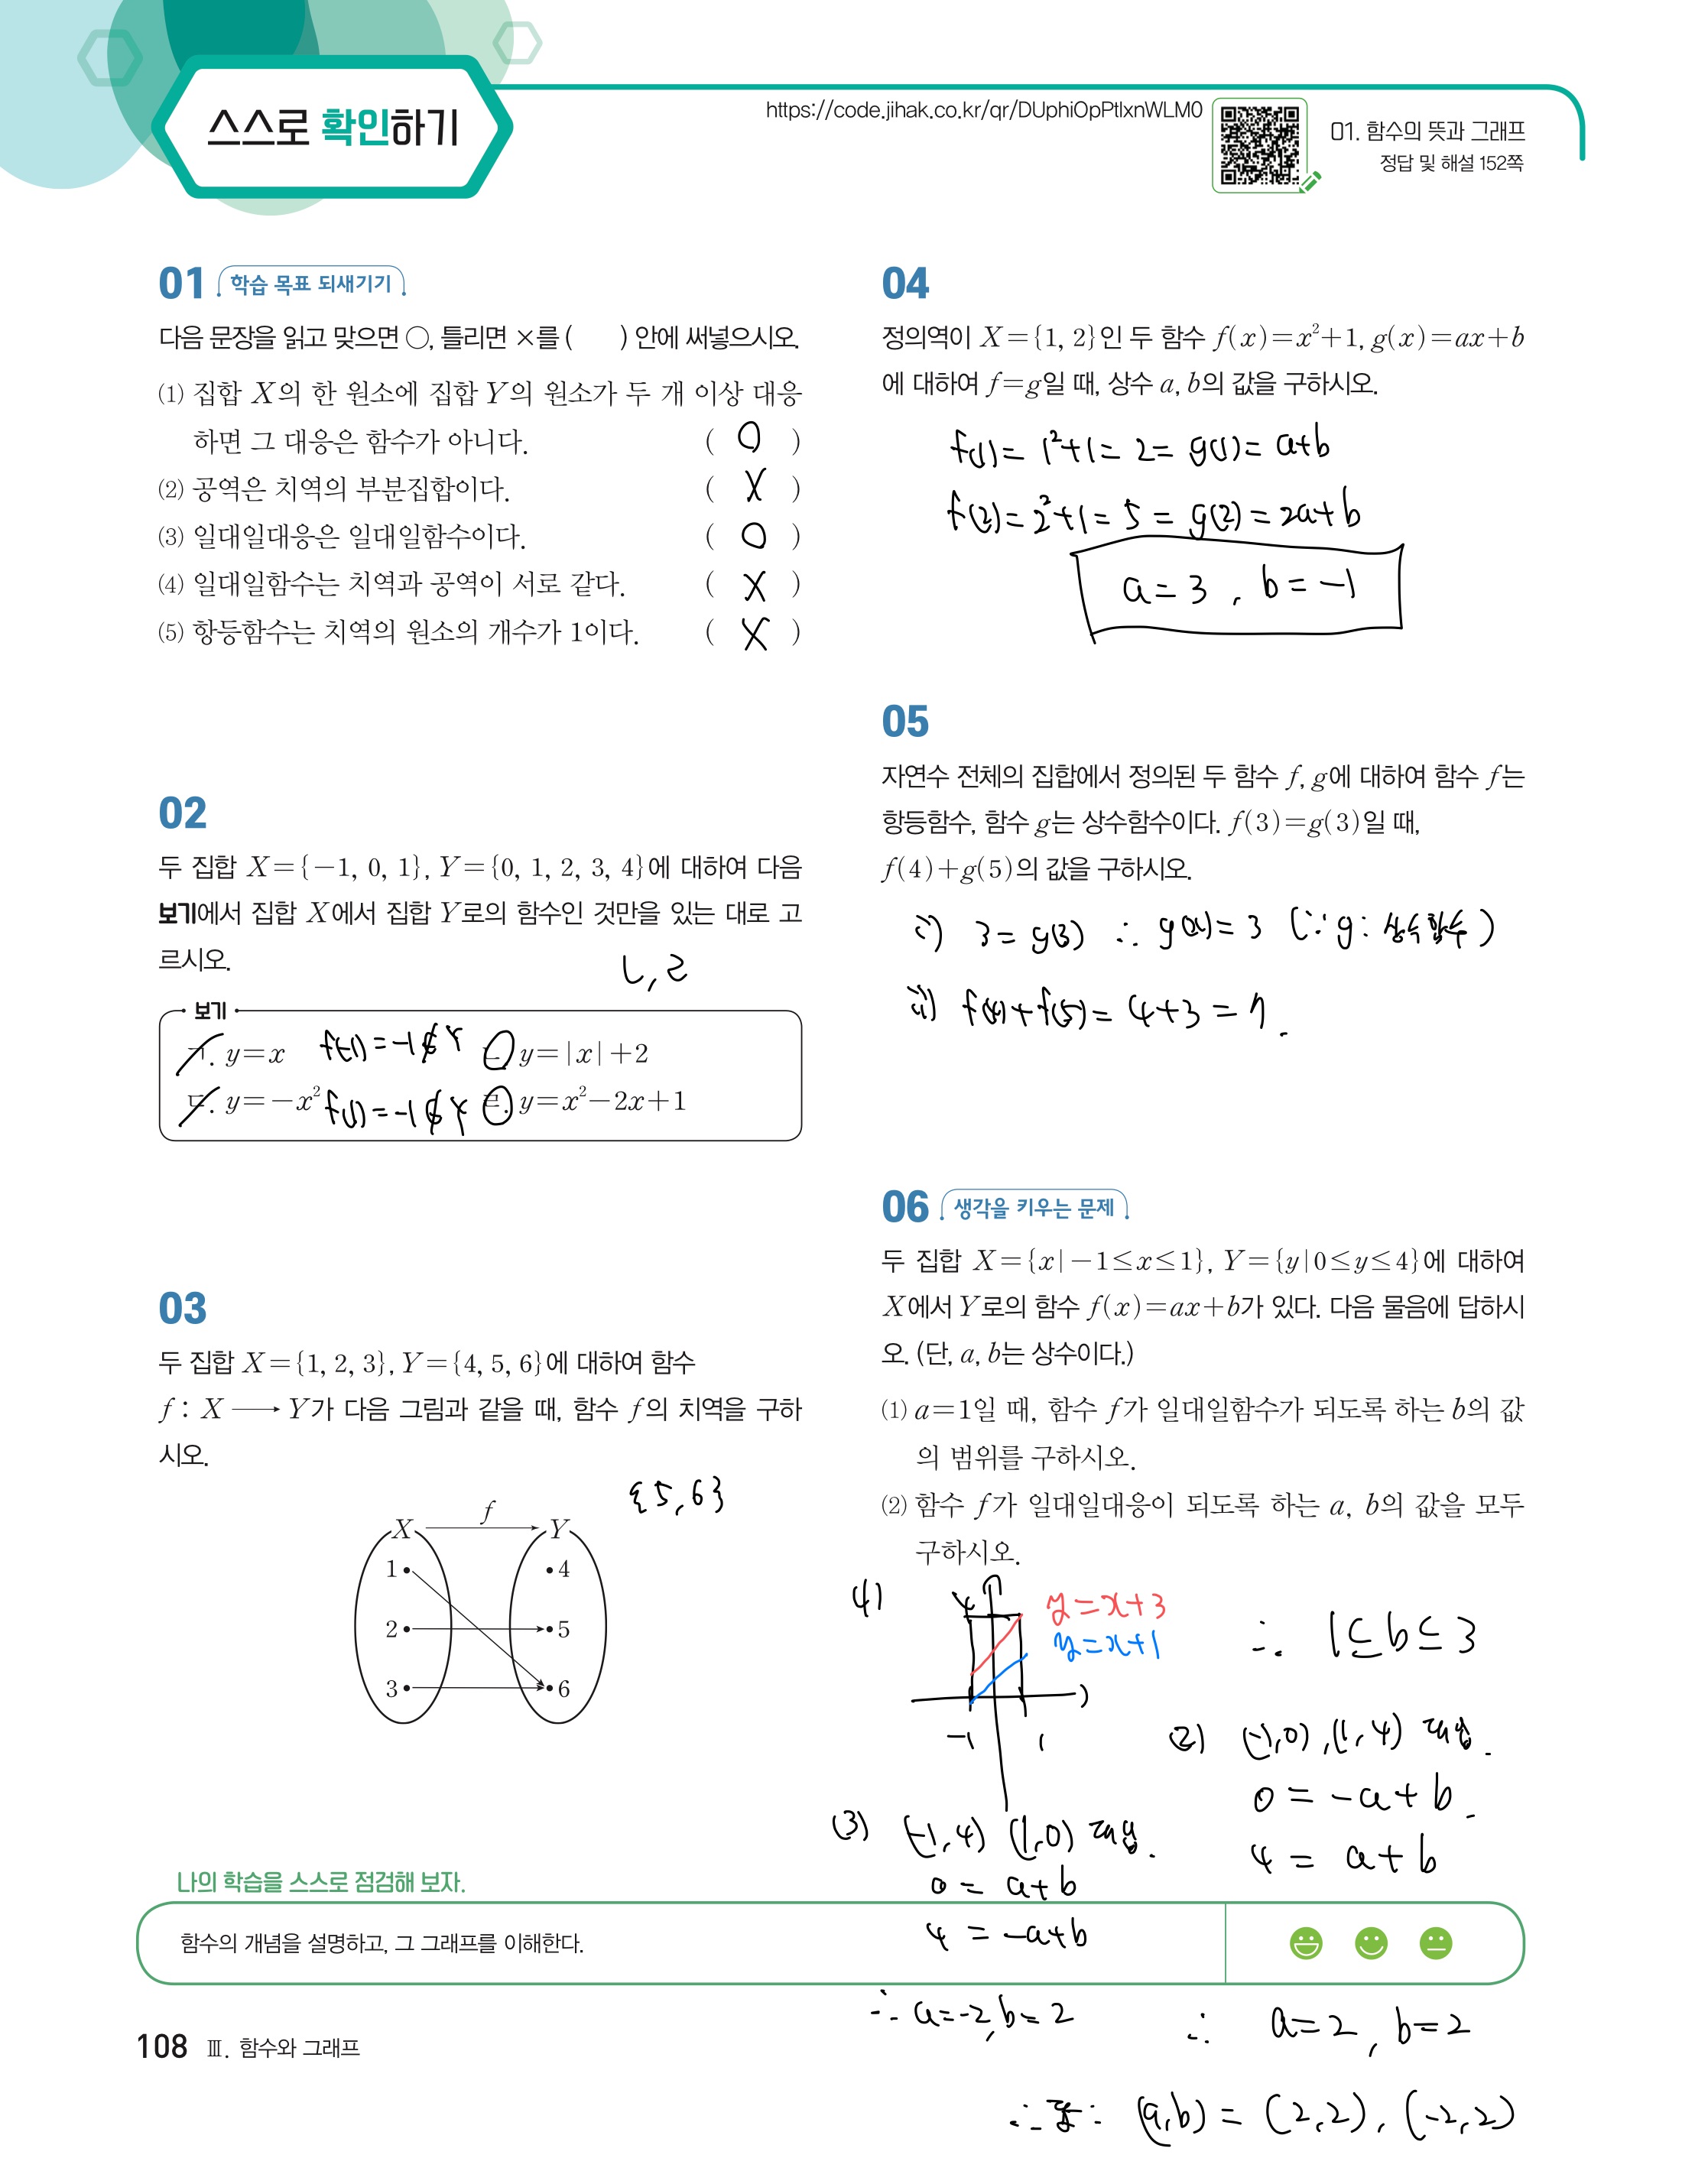 스스로 확인하기
https://code.jihak.co.kr/qr/DUphiOpPtlxnWLM0
01. 함수의 뜻과 그래프
정답 및 해설 152쪽
01 학습 목표 되새기기
다음 문장을 읽고 맞으면 ○, 틀리면 ×를 ( ) 안에 써넣으시오.
(1) 집합 X의 한 원소에 집합 Y의 원소가 두 개 이상 대응
하면 그 대응은 함수가 아니다. ( O )
(2) 공역은 치역의 부분집합이다. ( X )
(3) 일대일대응은 일대일함수이다. ( O )
(4) 일대일함수는 치역과 공역이 서로 같다. ( X )
(5) 항등함수는 치역의 원소의 개수가 1이다. ( X )
02
두 집합 X={-1, 0, 1}, Y={0, 1, 2, 3, 4}에 대하여 다음
보기에서 집합 X에서 집합 Y로의 함수인 것만을 있는 대로 고
르시오.
ㄴ, ㄹ
보기
ㄱ. y=x f(-1)=-1∉Y ㄴ. y=|x|+2
ㄷ. y=-x² f(1)=-1∉Y ㄹ. y=x²-2x+1
03
두 집합 X={1, 2, 3}, Y={4, 5, 6}에 대하여 함수
f : X → Y가 다음 그림과 같을 때, 함수 f의 치역을 구하
시오.
{5, 6}
f
X Y
1 4
2 5
3 6
04
정의역이 X={1, 2}인 두 함수 f(x)=x²+1, g(x)=ax+b
에 대하여 f=g일 때, 상수 a, b의 값을 구하시오.
f(1)=1²+1=2=g(1)=a+b
f(2)=2²+1=5=g(2)=2a+b
a=3, b=-1
05
자연수 전체의 집합에서 정의된 두 함수 f, g에 대하여 함수 f는
항등함수, 함수 g는 상수함수이다. f(3)=g(3)일 때,
f(4)+g(5)의 값을 구하시오.
i) 3=g(3) ∴ g(x)=3 (∵ g: 상수함수)
ii) f(4)+f(5)=4+3=7.
06 생각을 키우는 문제
두 집합 X={x|-1≤x≤1}, Y={y|0≤y≤4}에 대하여
X에서 Y로의 함수 f(x)=ax+b가 있다. 다음 물음에 답하시
오. (단, a, b는 상수이다.)
(1) a=1일 때, 함수 f가 일대일함수가 되도록 하는 b의 값
의 범위를 구하시오.
(2) 함수 f가 일대일대응이 되도록 하는 a, b의 값을 모두
구하시오.
1)
4
y=x+3
y=x+1
-1 1
∴ 1≤b≤3
(2) (-1,0), (1,4) 대입.
0=-a+b.
4=a+b
∴ a=2, b=2
(3) (-1,4) (1,0) 대입.
0=a+b
4=-a+b
∴ a=-2, b=2
∴ 답: (a,b)=(2,2), (-2,2)
나의 학습을 스스로 점검해 보자.
함수의 개념을 설명하고, 그 그래프를 이해한다.
108 Ⅲ. 함수와 그래프